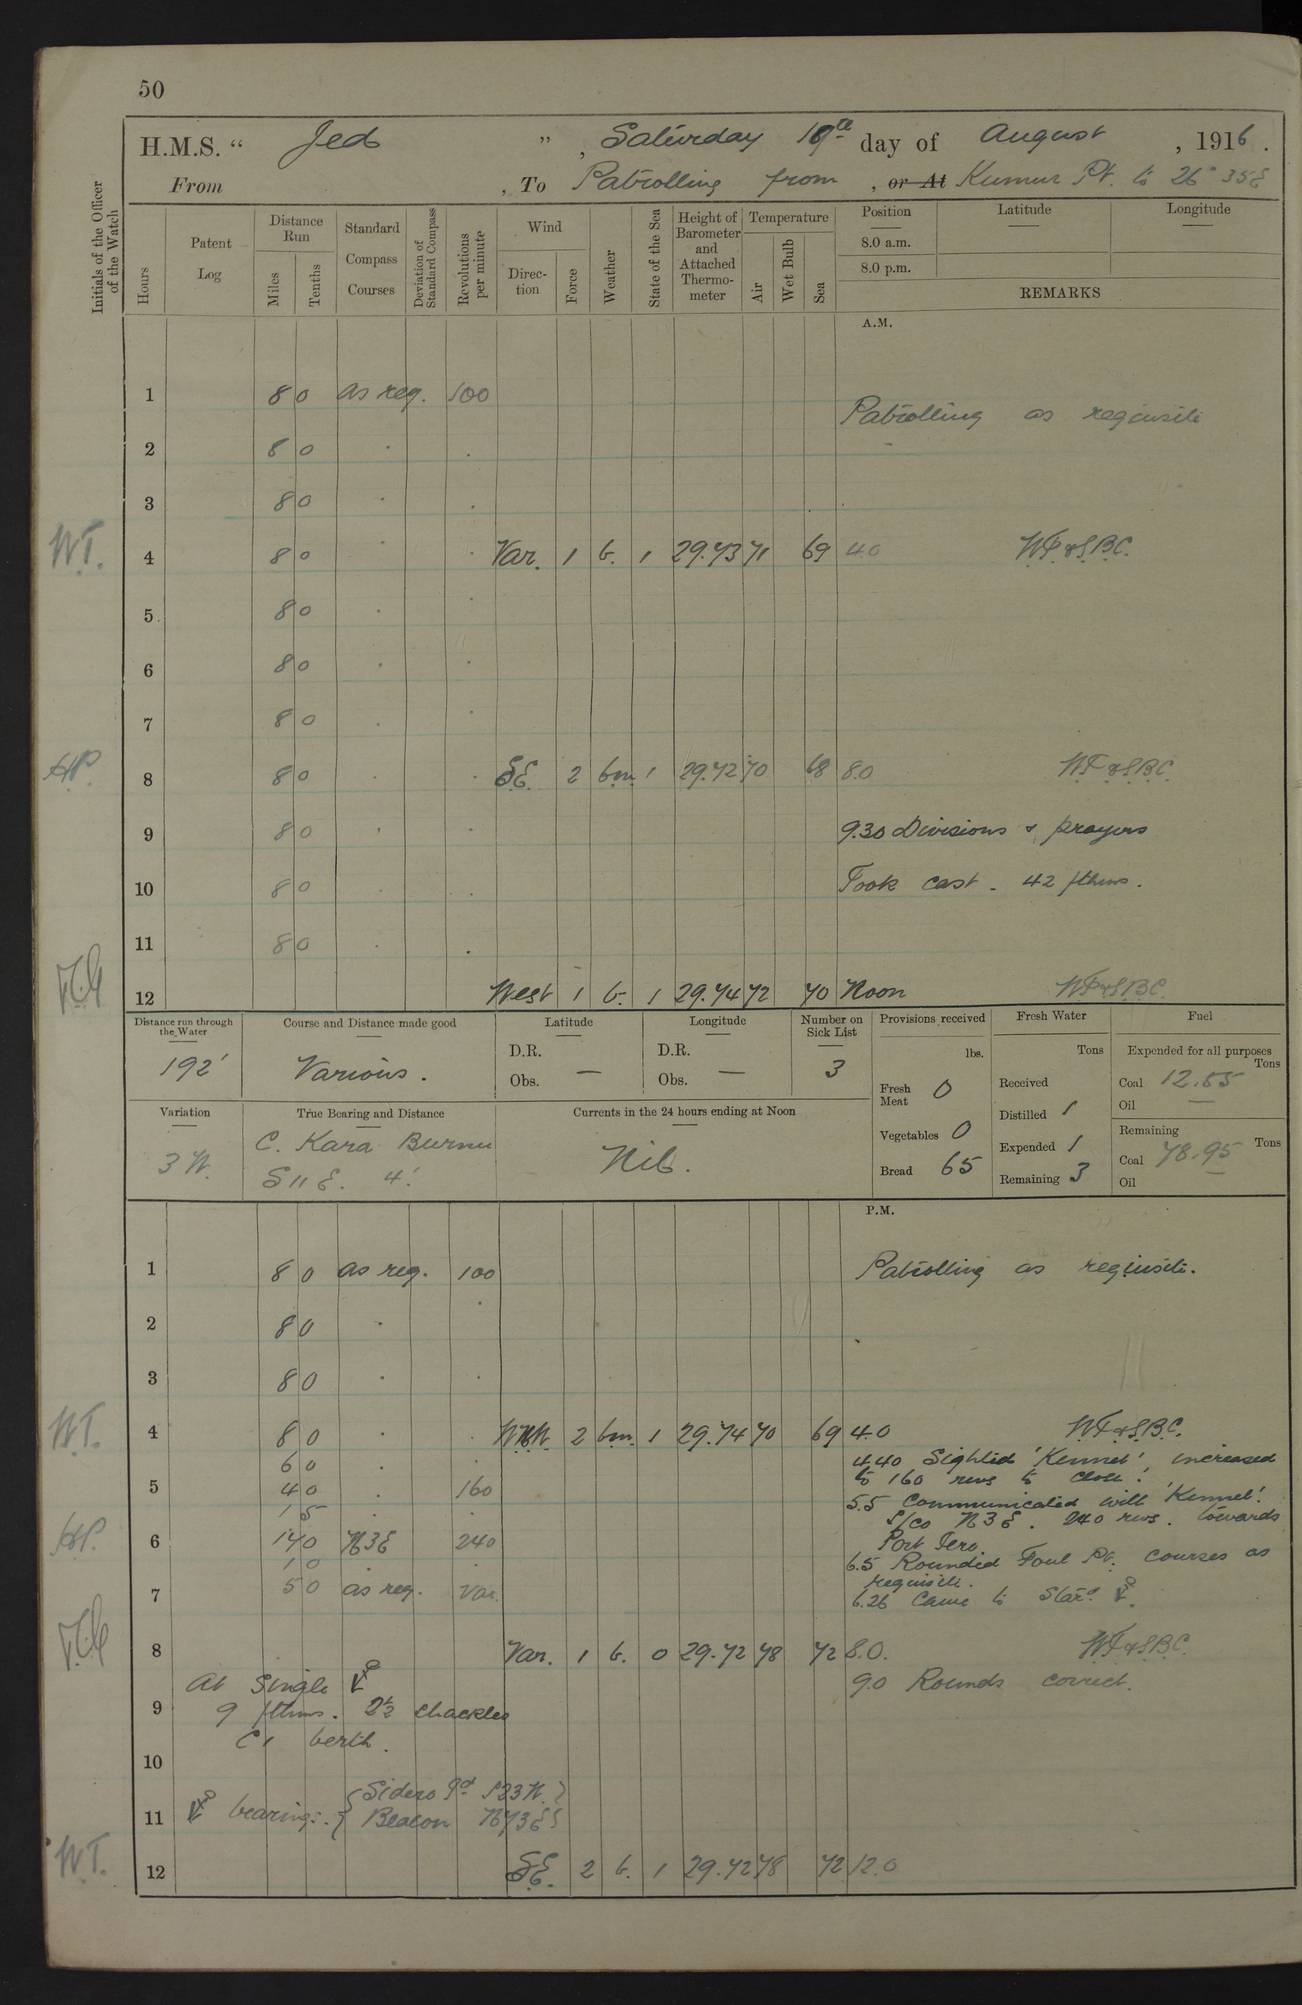 50
H.M.S. “ Jed ” , Saturday 19th day of August , 1916 .
From , To Patrolling from , or At Kumur Pt. to 26° 35 E
Initials of the Officer of the Watch
Hours
Patent Log
Distance Run
Miles
Tenths
Standard Compass Courses
Deviation of Standard Compass
Revolutions per minute
Wind
Direction
Force
Weather
State of the Sea
Height of Barometer and Attached Thermometer
Temperature
Air
Wet Bulb
Sea
Position
Latitude
Longitude
8.0 a.m.
8.0 p.m.
REMARKS
A.M.
1 8 0 as req. 100
Patrolling as requisite
2 8 0 . .
3 8 0 . .
W.T. 4 8 0 . . Var. 1 b. 1 29.73 71 69 4.0 W.T. & S.B.C.
5 8 0 . .
6 8 0 . .
7 8 0 . .
H.P. 8 8 0 . . S.E. 2 b.m. 1 29.72 70 68 8.0 W.T. & S.B.C.
9 8 0 . . 9.30 Divisions & prayers
10 8 0 . . Took cast - 42 fthms.
11 8 0 . .
12 West 1 b. 1 29.74 72 70 Noon W.T. & S.B.C.
Distance run through the Water
Course and Distance made good
Latitude
Longitude
Number on Sick List
Provisions received
Fresh Water
Fuel
192'
Various.
D.R.
Obs. —
D.R.
Obs. —
3
lbs.
Fresh Meat 0
Vegetables 0
Bread 65
Tons
Received
Distilled 1
Expended 1
Remaining 3
Expended for all purposes
Tons
Coal 12.55
Oil —
Remaining
Coal 78.95 Tons
Oil —
Variation
3 W.
True Bearing and Distance
C. Kara Burnu
S 11 E. 4'.
Currents in the 24 hours ending at Noon
Nil.
P.M.
1 8 0 as req. 100 Patrolling as requisite.
2 8 0 . .
3 8 0 . .
W.T. 4 8 0 . . WNW. 2 b.m. 1 29.74 70 69 4.0 W.T. & S.B.C.
6 0 . . 4.40 Sighted 'Kennet', increased
5 4 0 . 160 to 160 revs to close.
1 5 . . 5.5 Communicated with 'Kennet'.
S/co N3E. 240 revs. towards
H.P. 6 17 0 N3E 240 Port Iero.
1 0 . . 6.5 Rounded Foul Pt. courses as
5 0 as req. Var. requisite.
7 6.26 Came to Starb.d ⚓.
8 Var. 1 b. 0 29.72 78 72 8.0. W.T. & S.B.C.
At Single ⚓ 9.0 Rounds correct.
9 9 fthms. 2½ shackles
C1 berth.
10
11 ⚓ bearings:. { Sidero Id S23W. }
{ Beacon N73E }
W.T. 12 S.E. 2 b. 1 29.72 78 72 12.0